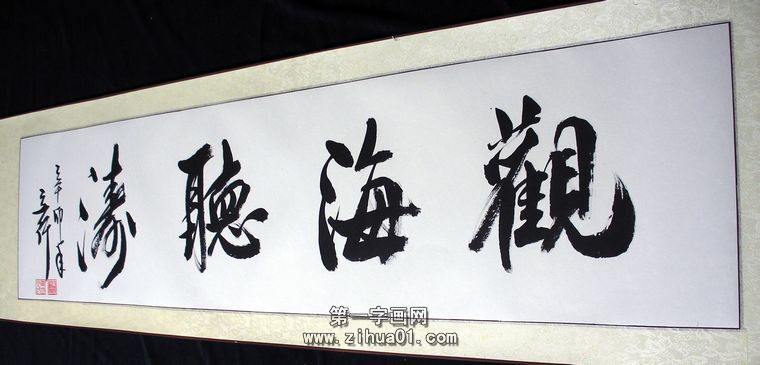 觀海聽濤
辛卯年
第一字画网
www.zihua01.com